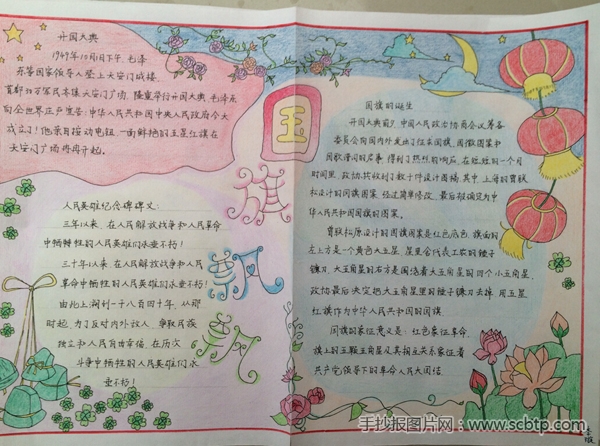 开国大典
1949年10月1日下午,毛泽
东等国家领导人登上天安门城楼.
首都30万军民齐集天安门广场,隆重举行开国大典.毛泽东
向全世界庄严宣告:中华人民共和国中央人民政府今天
成立了!他亲自按动电钮,一面鲜艳的五星红旗在
天安门广场冉冉升起.
人民英雄纪念碑碑文:
三年以来,在人民解放战争和人民革命
中牺牲的人民英雄们永垂不朽!
三十年以来,在人民解放战争和人民
革命中牺牲的人民英雄们永垂不朽!
由此上溯到一千八百四十年,从那
时起,为了反对内外敌人,争取民族
独立和人民自由幸福,在历次
斗争中牺牲的人民英雄们永
垂不朽!
国
旗
飘
飘
国旗的诞生
开国大典前夕,中国人民政治协商会议筹备
委员会向国内外发出了征求国旗,国徽图案和
国歌词谱的启事,得到了热烈的响应,在短短的一个月
时间里,政协共收到了数千件设计图稿,其中,上海的曾联
松设计的国旗图案,经过简单修改,最后被确定为中
华人民共和国国旗的图案.
曾联松原设计的国旗图案是红色旗底,旗面的
左上方是一个黄色大五星,星里含代表工农的锤子
镰刀,大五角星的右方是围绕着大五角星的四个小五角星,
政协最后决定把大五角星里的锤子镰刀去掉,用五星
红旗作为中华人民共和国的国旗
国旗的象征意义是:红色象征革命,
旗上的五颗五角星及其相互关系象征着
共产党领导下的革命人民大团结.
手抄报图片网
www.scbtp.com